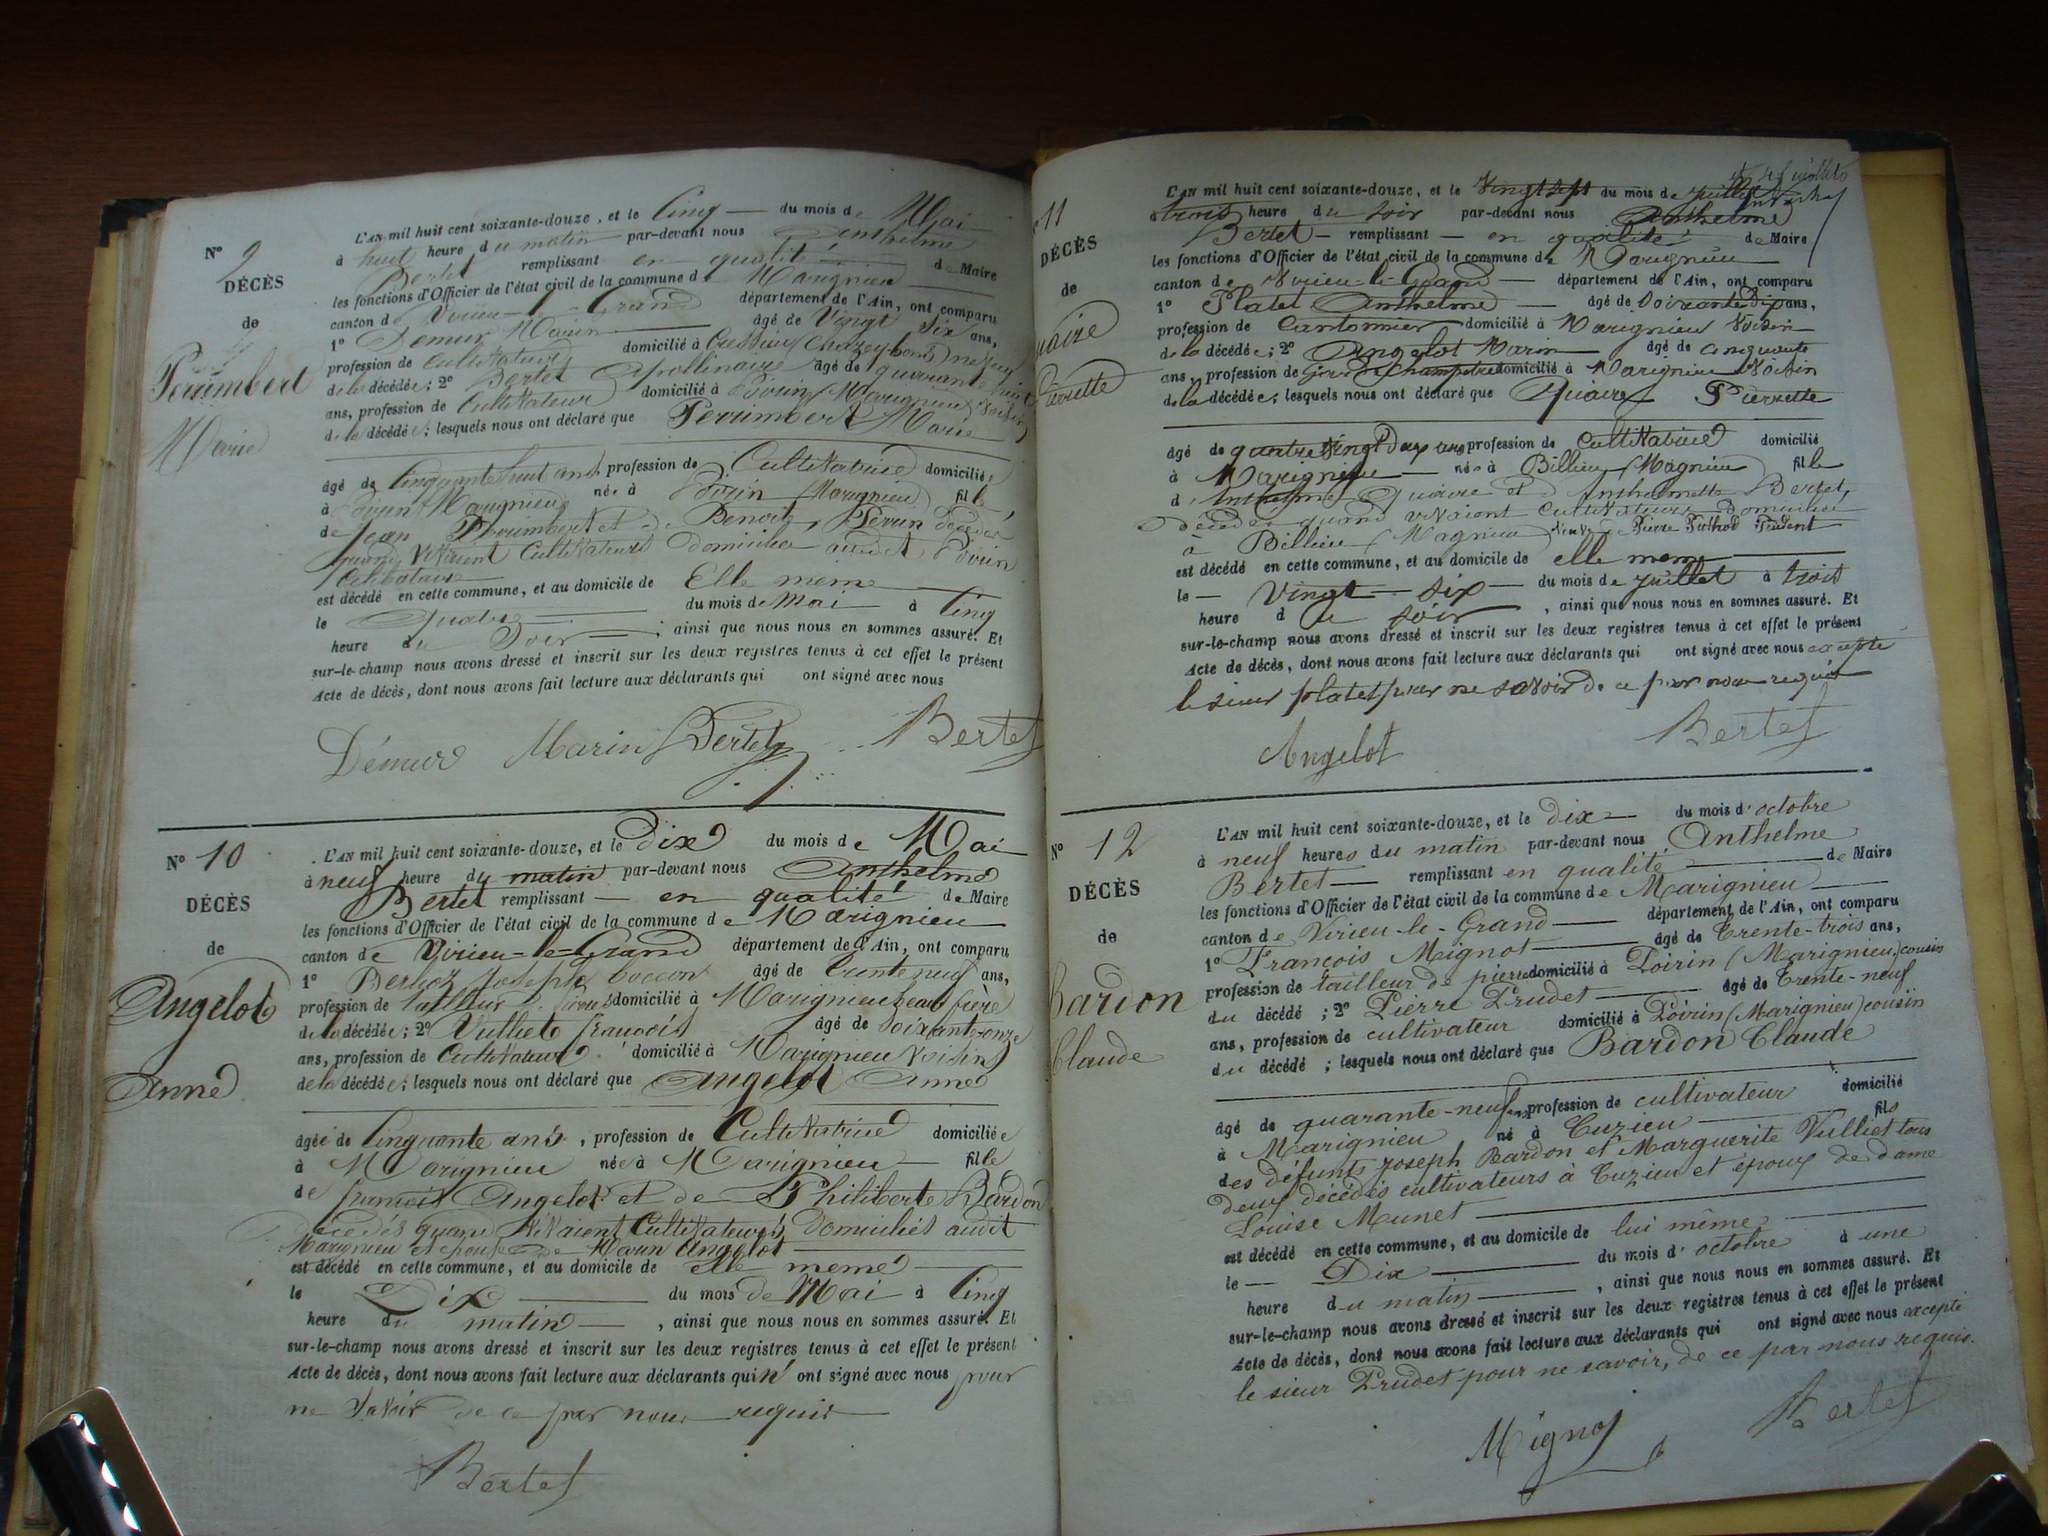 N° 9
DÉCÈS
de
Perimbert
Marie
L'AN mil huit cent soixante-douze, et le Cinq du mois de Mai
à huit heure du matin par-devant nous Anthelme
Bertet remplissant en qualité de Maire
les fonctions d'Officier de l'état civil de la commune de Marignieu
canton de Virieu-le-Grand département de l'Ain, ont comparu
1° Demur Marin âgé de Vingt Six ans,
profession de Cultivateur domicilié à Cressieu Chazey-bons neveu
de la décédée; 2° Bertet Apollinaire âgé de quarante huit
ans, profession de Cultivateur domicilié à Poirin (Marignieu) Voisin
de la décédée; lesquels nous ont déclaré que Perimbert Marie
âgé de Cinquante huit ans profession de Cultivatrice domiciliée
à Poirin Marignieu née à Poirin (Marignieu) fille
de Jean Perimbert et de Benoite Perrin décédés
quand vivaient Cultivateurs domiciliés audit Poirin
Célibataire
est décédé en cette commune, et au domicile de Elle même
le Quatre du mois de Mai à Cinq
heure du Soir ; ainsi que nous nous en sommes assuré. Et
sur-le-champ nous avons dressé et inscrit sur les deux registres tenus à cet effet le présent
Acte de décès, dont nous avons fait lecture aux déclarants qui ont signé avec nous
Démur Marin Bertet Bertet
N° 10
DÉCÈS
de
Angelot
Anne
L'AN mil huit cent soixante-douze, et le Dix du mois de Mai
à neuf heure du matin par-devant nous Anthelme
Bertet remplissant en qualité de Maire
les fonctions d'Officier de l'état civil de la commune de Marignieu
canton de Virieu-le-Grand département de l'Ain, ont comparu
1° Berlioz Joseph âgé de trente neuf ans,
profession de tailleur domicilié à Marignieu beau frère
de la décédée; 2° Vulliet françois âgé de soixante-onze
ans, profession de Cultivateur domicilié à Marignieu Voisin
de la décédée; lesquels nous ont déclaré que Angelot Anne
âgée de Cinquante ans, profession de Cultivatrice domiciliée
à Marignieu née à Marignieu fille
de françois Angelot et de Philiberte Bardon
décédés quand vivaient Cultivateurs domiciliés audit
Marignieu et épouse de Marin Angelot
est décédé en cette commune, et au domicile de elle même
le Dix du mois de Mai à Cinq
heure du matin , ainsi que nous nous en sommes assuré. Et
sur-le-champ nous avons dressé et inscrit sur les deux registres tenus à cet effet le présent
Acte de décès, dont nous avons fait lecture aux déclarants qui n'ont signé avec nous pour
ne savoir de ce par nous requis
Bertet
11
DÉCÈS
de
uaire
Pierrette
L'AN mil huit cent soixante-douze, et le Vingt sept du mois de juillet
à trois heure du soir par-devant nous Anthelme
Bertet remplissant en qualité de Maire
les fonctions d'Officier de l'état civil de la commune de Marignieu
canton de Virieu-le-Grand département de l'Ain, ont comparu
1° Platet Anthelme âgé de soixante dix ans,
profession de Cantonnier domicilié à Marignieu Voisin
de la décédée; 2° Angelot Marin âgé de cinquante
ans, profession de garde Champêtre domicilié à Marignieu Voisin
de la décédée; lesquels nous ont déclaré que Quaire Pierrette
âgé de quatre vingt deux ans profession de Cultivatrice domicilié
à Marignieu née à Billieu (Magnieu) fille
d'Anthelme Quaire et d'Anthelmette Bertet
décédés quand vivaient Cultivateurs domiciliés
à Billieu (Magnieu) Veuve de Pierre Prudent
est décédé en cette commune, et au domicile de elle meme
le Vingt-six du mois de juillet à trois
heure du soir , ainsi que nous nous en sommes assuré. Et
sur-le-champ nous avons dressé et inscrit sur les deux registres tenus à cet effet le présent
Acte de décès, dont nous avons fait lecture aux déclarants qui ont signé avec nous excepté
le sieur platet pour ne savoir de ce par nous requis
Angelot Bertet
N° 12
DÉCÈS
de
Bardon
Claude
L'AN mil huit cent soixante-douze, et le dix du mois d'octobre
à neuf heures du matin par-devant nous Anthelme
Bertet remplissant en qualité de Maire
les fonctions d'Officier de l'état civil de la commune de Marignieu
canton de Virieu-le-Grand département de l'Ain, ont comparu
1° François Mignot âgé de Trente-trois ans,
profession de tailleur de pierre domicilié à Poirin (Marignieu) cousin
du décédé ; 2° Pierre Prudet âgé de Trente-neuf
ans, profession de cultivateur domicilié à Poirin (Marignieu) cousin
du décédé ; lesquels nous ont déclaré que Bardon Claude
âgé de quarante-neuf ans profession de cultivateur domicilié
à Marignieu né à Cuzieu fils
des défunts Joseph Bardon et Marguerite Vulliet tous
deux décédés cultivateurs à Cuzieu et époux de dame
Louise Munet
est décédé en cette commune, et au domicile de lui même
le Dix du mois d'octobre à une
heure du matin , ainsi que nous nous en sommes assuré. Et
sur-le-champ nous avons dressé et inscrit sur les deux registres tenus à cet effet le présent
Acte de décès, dont nous avons fait lecture aux déclarants qui ont signé avec nous excepté
le sieur Prudet pour ne savoir, de ce par nous requis.
Mignot Bertet